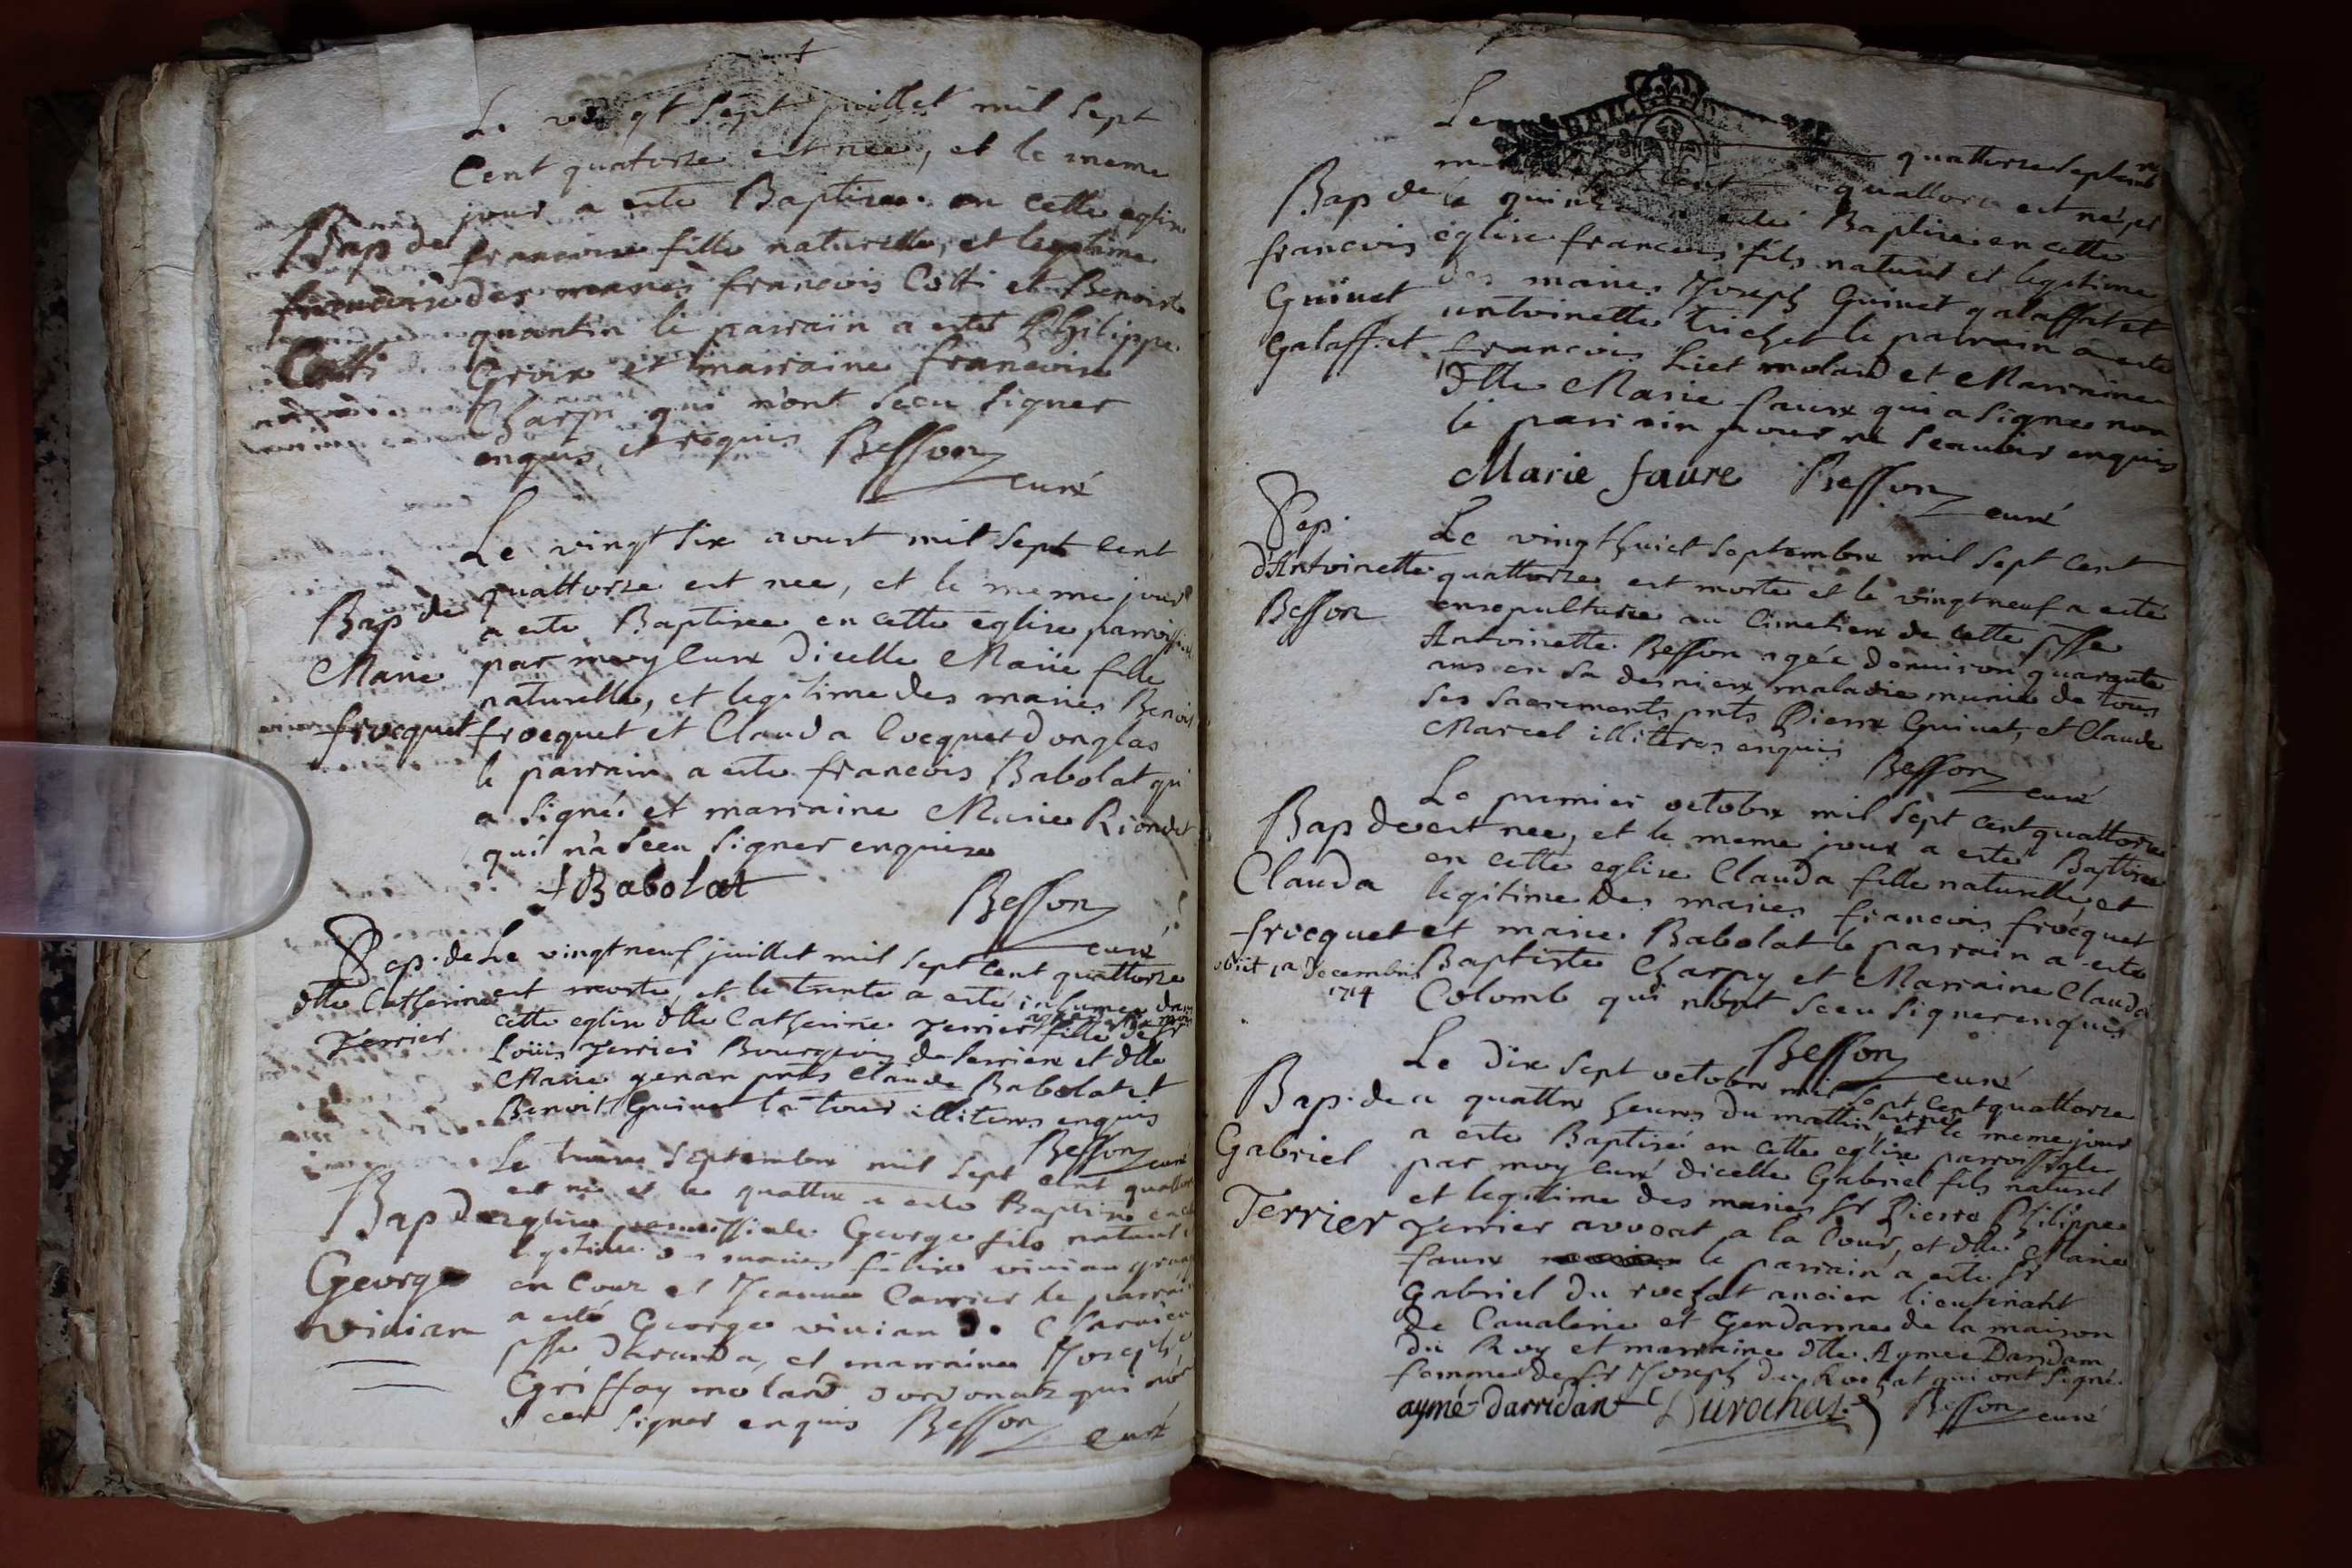 Le vingt Sept juillet mil Sept
Cent quatorse est nee, et le meme
jour a este Baptisee en cette eglise
Bap de
francoise fille naturelle, et legitime
francoise
des maries francois Cotti et Benoiste
Cotti
quantin le parrain a esté Philippe
Croix et marraine francoise
Charpy qui n'ont Sceu Signer
enquis et requis Besson
curé
Le vingt Six aoust mil Sept Cent
quattorse est nee, et le meme jour
Bap de
a este Baptisee en cette eglise
Marie
par moy Curé dicelle Marie fille
naturelle, et legitime des maries Benoit
frocquet
frocquet et Clauda Cocquet donglas
le parrain a este francois Babolat qui
a Signé et marraine Marie Riondet
qui n'a Sceu Signer enquise
f Babolat
Besson
curé
Sep. de
Le vingt neuf juillet mil Sept Cent quattorse
dlle Catherine
est morte, et le trente a esté inhumee dans
Terrier
cette eglise dlle Catherine Terrier fille de Sr
Loüis Terrier Bourgeois de Serriere et dlle
Marie genan pnts Claude Babolat et
Benoit Guinet la tour illiteres enquis
Besson curé
Le troise Septembre mil Sept Cent quattorse
est né et le quattre a este Baptisé en cette
Bap de
eglise parroissiale George fils naturel et
George
legitime des maries felix vivian
vivian
en Cour et Jeanne Carrier le parrain
a esté George vivian de Charnieu
psse daranda, et marraine Josephe
Griffay molard dordonat qui n'ont
Sceu Signer enquis Besson
curé
Le quattorse Septembre
mil Sept Cent quattorse est né, et
Bap de
le quinze a esté Baptisé en cette
francois
eglise francois fils naturel et legitime
Guinet
des maries Joseph Guinet galaffet et
Galaffet
antoinette trichet le parrain a este
francois Liet molard et Marraine
dlle Marie faure qui a Signee non
le parrain pour ne Scauoir enquis
Marie faure Besson
curé
Sep.
d'Antoinette
Besson
Le vingt huict Septembre mil Sept Cent
quattorse est morte et le vingt neuf a esté
ensepulturee au Cimetiere de cette psse
Antoinette Besson agée denuiron quarante
ans en Sa derniere maladie munie de tous
Ses Sacrements pnts Pierre Guinet, et Claude
Marcel illiteres enquis
Besson
curé
Le premier octobre mil Sept Cent quattorse
Bap de
est nee, et le meme jour a esté Baptisee
Clauda
en cette eglise Clauda fille naturelle et
legitime des maries francois frocquet
frocquet
et marie Babolat le parrain a este
obiit 1a Decembris
1714
Baptiste Charpy et Marraine Clauda
Colomb qui n'ont Sceu Signer enquis
Besson
curé
Le dix Sept octobre mil Sept Cent quattorse
Bap. de
a quattre heures du mattin, est né et le meme jour
Gabriel
a este Baptisé en cette eglise parroissiale
par moy curé dicelle Gabriel fils naturel
et legitime des maries Sr Pierre Philippe
Terrier
Terrier avocat a la Cour, et dlle Marie
faure le parrain a este Sr
Gabriel Du rochat ancien lieutenant
de Caualerie et Gendarme de la maison
du Roy et marraine dlle Aymee Dardam
femme de Sr Joseph du Rochat qui ont Signé.
aymé-darridan Durochat Besson curé